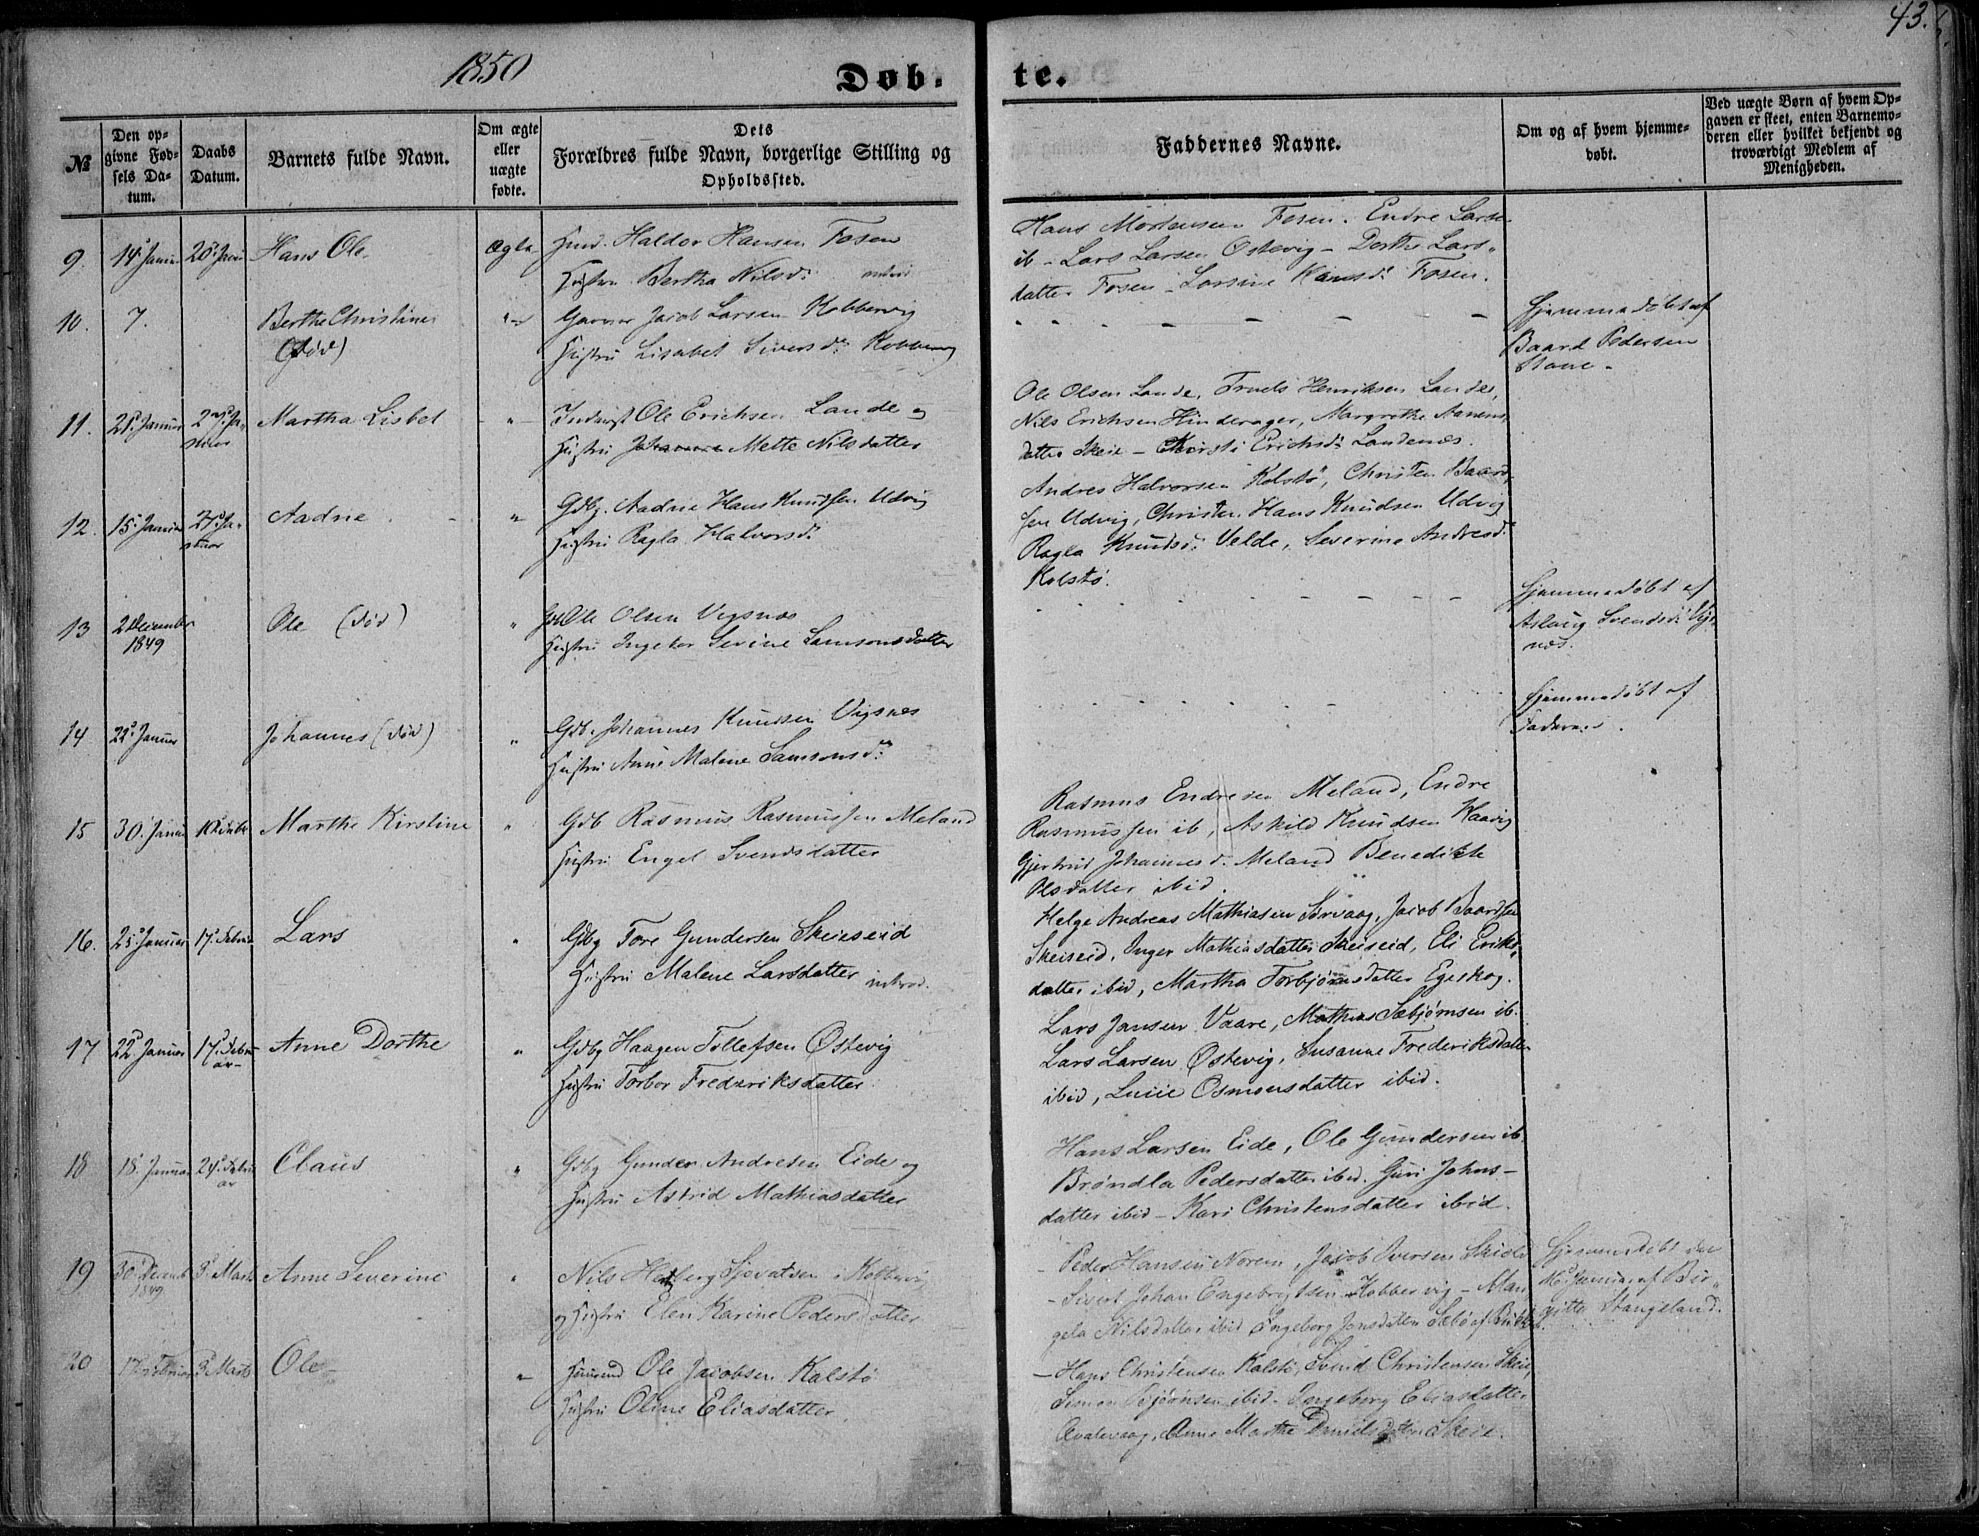 43.
1850
Døb-
te.
№
Den op-
givne Fød-
sels Da-
tum.
Daabs
Datum.
Barnets fulde Navn.
Om ægte
eller
uægte
fødte.
Dets
Forældres fulde Navn, borgerlige Stilling og
Opholdssted.
Faddernes Navne.
Om og af hvem hjemme-
døbt.
Ved uægte Børn af hvem Op-
gaven er skeet, enten Barnemo-
deren eller hvilket bekjendt og
troværdigt Medlem af
Menigheden.
9. 14 Januar 20 Janu Hans Ole Ægte Haldor Hansen Fosen
Hustru Bertha Nilsd.
Hans Mortensen Fosen. Endre Larsen
ib - Lars Larsen Østevig - Dorthe Lars-
datter Fosen - Larsine Hansd. Fosen.
10. 7. Berthe Christine
(død)
Jacob Larsen Kobbervig
Hustru Lisabet Siversd. Kobbervig
Hjemmedøbt af
Baard Pedersen
Stave.
11. 21 Januar 27 Ja-
nuar
Martha Lisbet
Ole Erichsen Lande og
Hustru Mette Nilsdatter
Ole Olsen Lande, Truels Henriksen Lande,
Nils Erichsen Hinderager, Margrethe
datter Skeie - Kirsti Erichsd. Landenes.
12. 15 Januar 27 Ja-
nuar
Aadne
Gdbg. Aadne Hans Knudsen Udvig
Hustru Ragla Halvorsd.
Andres Halvorsen Kolstø, Christen Baard-
sen Udvig, Christen Hans Knudsen Udvig
Ragla Knudsd. Velde, Severine Andresd.
Kolstø.
13 2 December
1849
Ole (død)
Ole Olsen Vigsnæs
Hustru Ingebor Sevine Samsonsdatter
Hjemmedøbt af
Aslaug Svendsd. Vigs-
næs.
14 22 Januar Johannes (død)
Gdb. Johannes Knudsen Vigsnes
Hustru Anne Malene Samsonsd.
Hjemmedøbt af
Faderen.
15 30. Janu 10 Febr Marthe Kirstine
Gdb Rasmus Rasmussen Meland
Hustru Engel Svendsdatter
Rasmus Endresen Meland, Endre
Rasmussen ib, Askild Knudsen Haavig
Gjertrud Johannesd. Meland Benedikte
Olsdatter ibid.
16. 25 Januar 17 Febru Lars
Gdbg Tore Gundersen Skeiseid
Hustru Malene Larsdatter introd.
Helge Andreas Mathiasen Sørvaag, Jacob Baardsen
Skeiseid, Inger Mathiasdatter Skeiseid, Eli Eriks-
datter ibid, Martha Torbjørnsdatter Egeskog.
17 22 Januar 17. Febru-
ar
Anne Dorthe
Gdbg Haagen Tollefsen Østevig
Hustru Torbor Frederiksdatter
Lars Jansen Vaare, Mathias Sæbjørnsen ib.
Lars Larsen Østevig, Susanne Frederiksdatter
ibid, Lucie Osmonsdatter ibid.
18 18. Januar 24 Febru
ar
Claus
Gdbg Gunder Andresen Eide og
Hustru Astrid Mathiasdatter
Hans Larsen Eide, Ole Gundersen ib.
Brøndla Pedersdatter ibid. Guri Johns-
datter ibid - Kari Christensdatter ibid.
19 30 Decemb
1849
3 Marts Anne Severine
Nils Sjovatsen Kobbervig
og Hustru Elen Karine Pedersdatter
Peder Hansen Norem, Jacob Iversen
Sivert Johan Engebrigtsen Kobbervig - Man-
gela Nilsdatter ibid Ingeborg Jonsdatter Sæbø
Hjemmedøbt den
Januar af Bir-
gitte Stangeland.
20 17 Februar 3 Marts Ole
Huusmd Ole Jacobsen Kalstø
Hustru Oline Eliasdatter
Hans Christensen Kalstø, Svend Christensen Skeie,
Simon Bjørnsen ibid. Ingeborg Eliasdatter
Qvalevaag, Anne Marthe Danielsdatter Skeie.